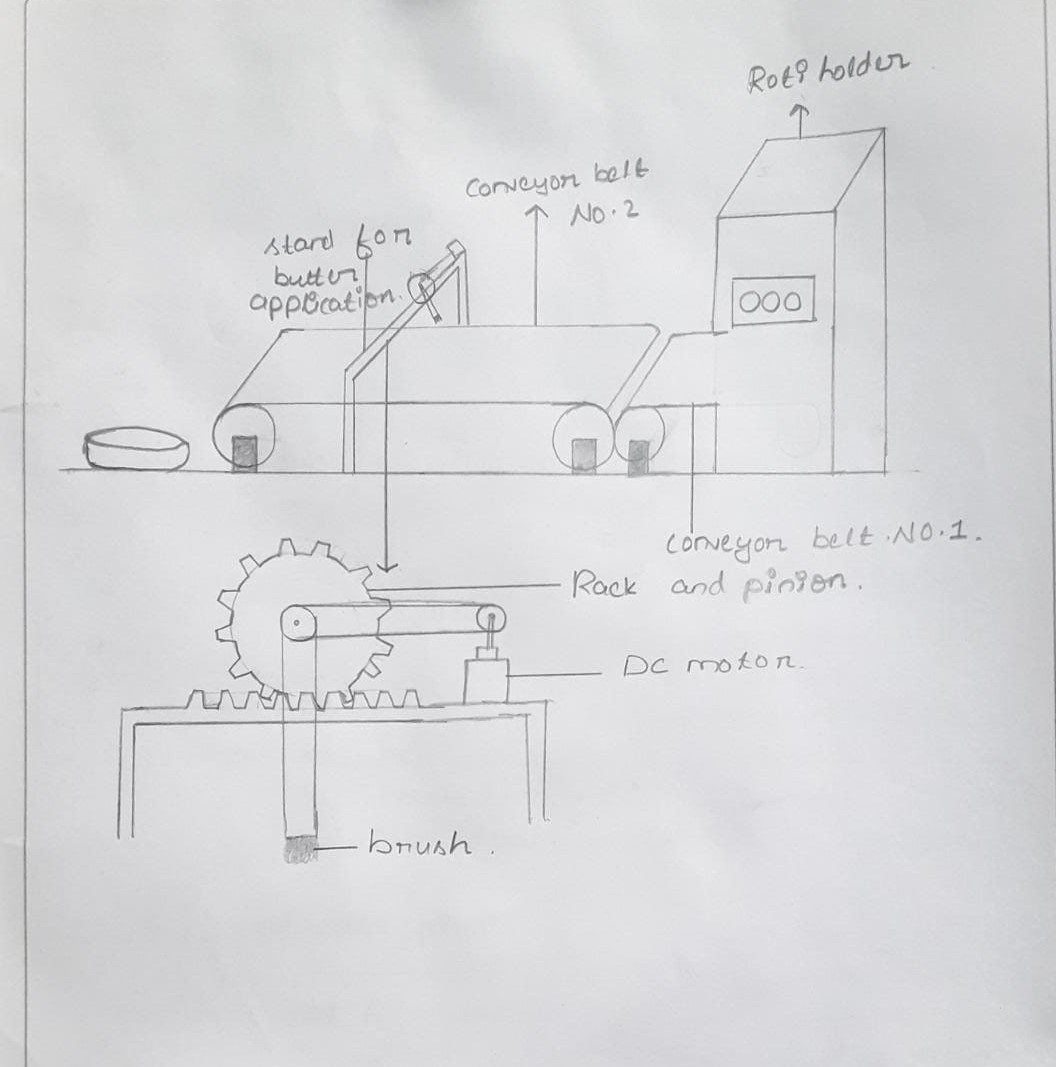 Roti holder
Conveyor belt
No.2
stand for
butter
application.
conveyor belt .No.1.
Rack and pinion.
DC motor.
brush.